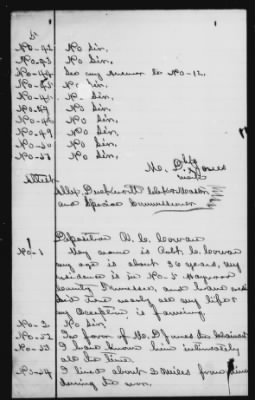 No-42 No Sir.
No-43 No Sir.
No-44 See my answer to No-12.
No-45 No Sir.
No-46 No Sir.
No-47 No Sir.
No-48 No Sir.
No-49 No Sir.
No-50 No Sir.
No Sir.
his
M. D. Jones
mark
Attest
Alex. Duckworth
and Special Commissioner
Deposition A. C. Cowan
No-1 My name is C. Cowan
my age is about 36 years, my
residence is in No-5 Haywood
County Tennessee, and have
here nearly all my life &
my occupation is farming
No-2 No Sir
No-52 In favor of M. D. Jones the Claimant
No-53 I have known him intimately
all the time
No-54 I lived about 2 miles from him
during the war.